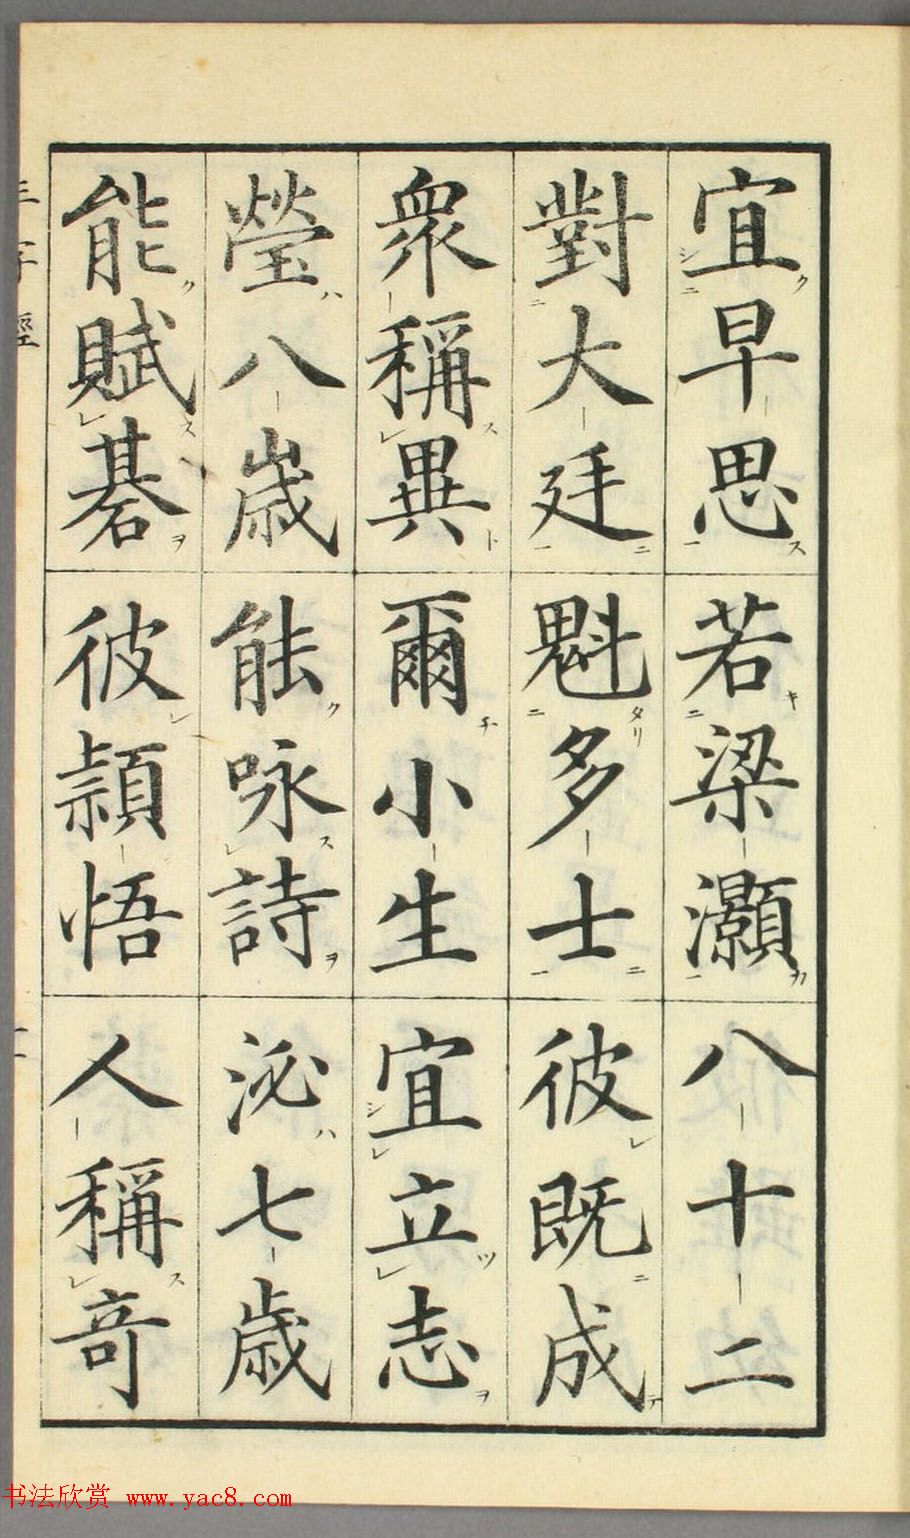 宜早思若梁灝八十二
對大廷魁多士彼既成
衆稱異爾小生宜立志
瑩八歲能咏詩泌七歲
能賦碁彼穎悟人稱奇
三字經
书法欣赏 www.yac8.com